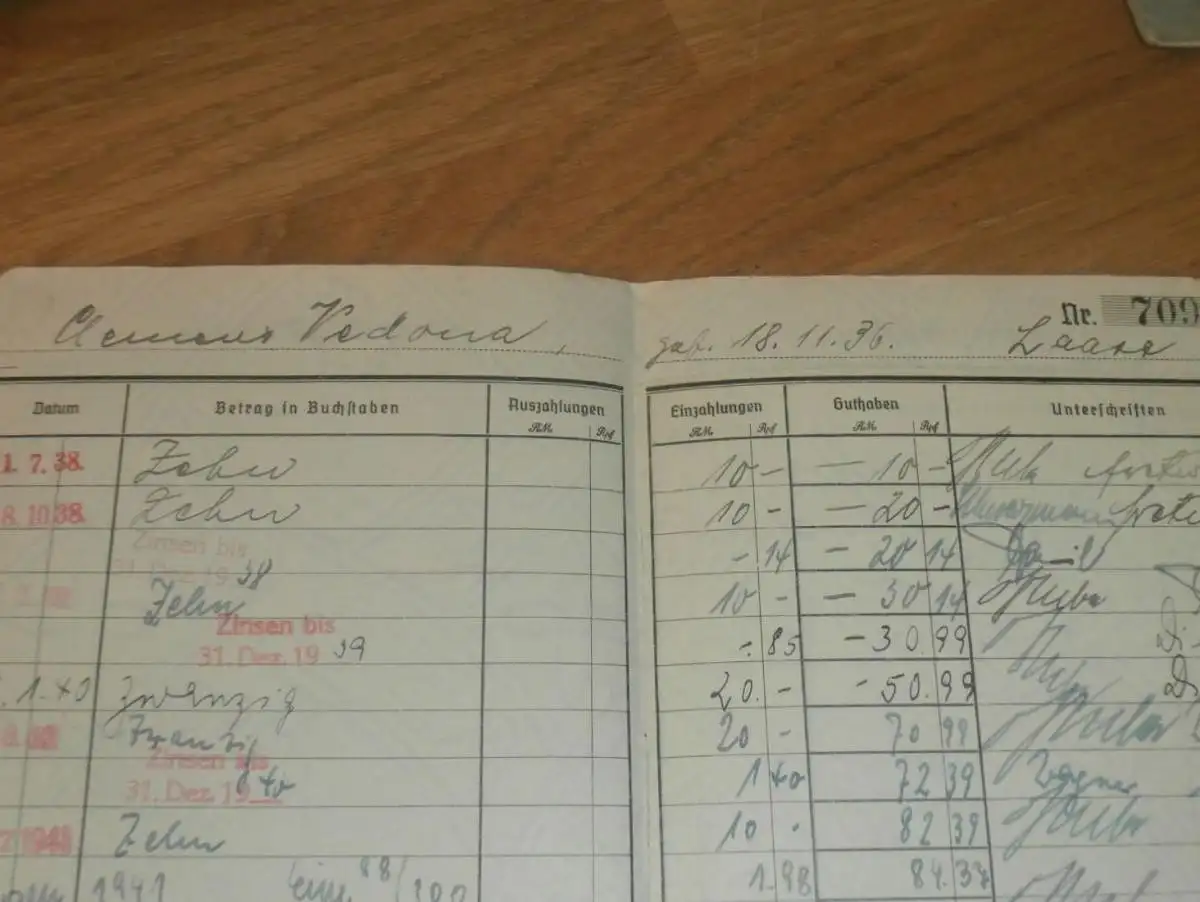 Nr. 709
Clemens Vedova, geb. 18.11.36. Laase
Datum Betrag in Buchstaben Auszahlungen Einzahlungen Guthaben Unterschriften
RM Rpf RM Rpf RM Rpf
1. 7. 38. Zehn 10 - - 10 - Huber
8. 10. 38. Zehn 10 - - 20 -
Zinsen bis
31. Dez. 19 38 - 14 - 20 14
Zehn 10 - - 30 14 Huber
Zinsen bis
31. Dez. 19 39 - 85 - 30. 99
. 1. 40 Zwanzig 20. - - 50. 99
Zwanzig 20 - 70 99 Huber
Zinsen bis
31. Dez. 19 40 1 40 72 39 Wagner
1941 Zehn 10 - 82 39 Huber
1941 eine 98/100 1.98 84.37